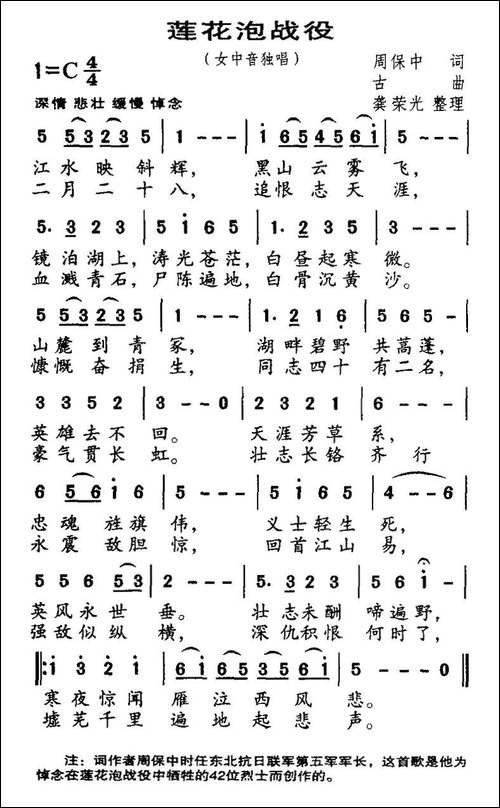 莲花泡战役
（女中音独唱）
1=C 4/4
周保中 词
古 曲
龚荣光 整理
深情 悲壮 缓慢 悼念
5 5 3 2 3 5 | 1 - - - | 1 6 5 4 5 6 i | 5 - - - |
江水映斜辉， 黑山云雾飞，
二月二十八， 追恨志天涯，
5. 3 2 3 | 5 i 6 5 | 1. 2 3 5 | 3 - - - |
镜泊湖上，涛光苍茫，白昼起寒微。
血溅青石，尸陈遍地，白骨沉黄沙。
5 5 3 2 3 5 | 1 - - - | 1. 2 1 6 | 5 6 5 - |
山麓到青冢， 湖畔碧野共蒿蓬，
慷慨奋捐生， 同志四十有二名，
3 3 5 2 | 3 - - 0 | 2 3 2 1 | 6 - - - |
英雄去不回。 天涯芳草系，
豪气贯长虹。 壮志长铬齐行
6 5 6 i 6 | 5 - - - | 5 i 6 5 | 4 - - 6 |
忠魂旌旗伟， 义士轻生死，
永震敌胆惊， 回首江山易，
5 5 6 5 3 | 2 - - - | 5. 3 2 3 | 5 6 i - |
英风永世垂。 壮志未酬啼遍野，
强敌似纵横， 深仇积恨何时了，
‖: i 3 2 i | 6 i 6 5 3 5 6 i | 5 - - 0 :‖
寒夜惊闻雁泣西风悲。
墟芜千里遍地起悲声。
注：词作者周保中时任东北抗日联军第五军军长，这首歌是他为
悼念在莲花泡战役中牺牲的42位烈士而创作的。